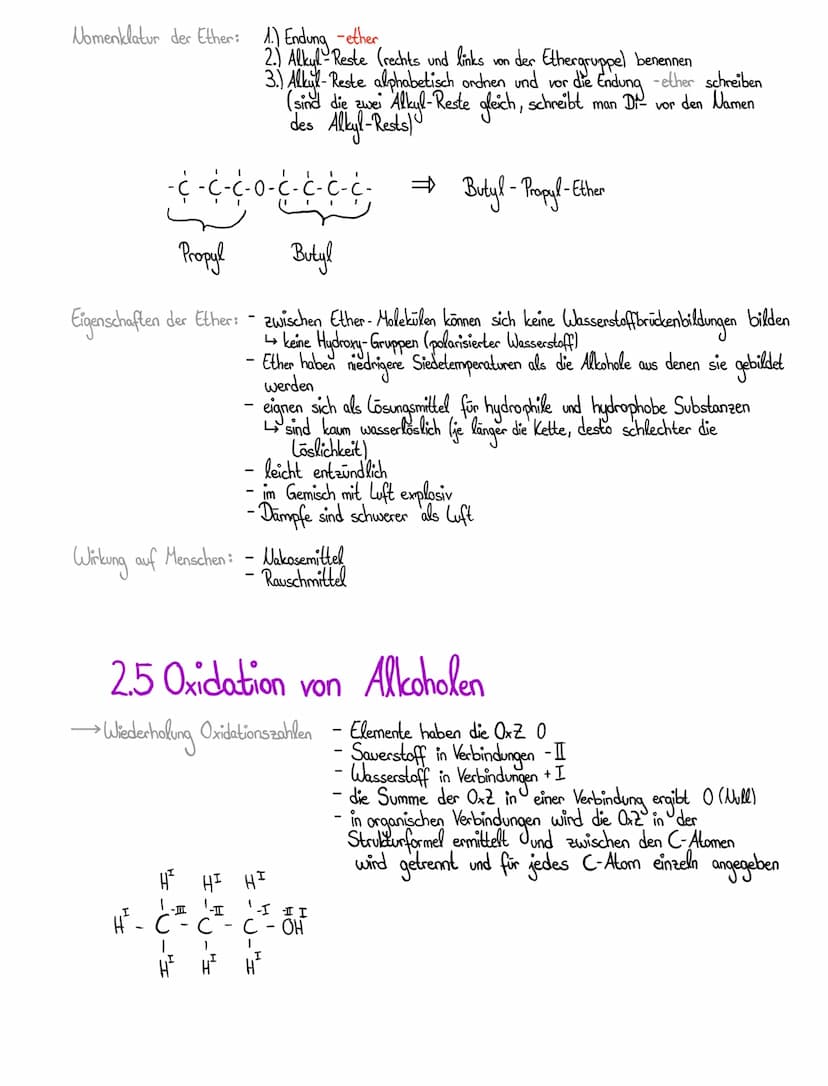 Nomenklatur der Ether: 1.) Endung -ether
2.) Alkyl-Reste (rechts und links von der Ethergruppe) benennen
3.) Alkyl-Reste alphabetisch ordnen und vor die Endung -ether schreiben
(sind die zwei Alkyl-Reste gleich, schreibt man Di- vor den Namen
des Alkyl-Rests)
-C-C-C-O-C-C-C-C- ⇒ Butyl-Propyl-Ether
Propyl Butyl
Eigenschaften der Ether: - zwischen Ether-Molekülen können sich keine Wasserstoffbrückenbildungen bilden
↳ keine Hydroxy-Gruppen (polarisierter Wasserstoff)
- Ether haben niedrigere Siedetemperaturen als die Alkohole aus denen sie gebildet
werden
- eignen sich als Lösungsmittel für hydrophile und hydrophobe Substanzen
↳ sind kaum wasserlöslich (je länger die Kette, desto schlechter die
Löslichkeit)
- leicht entzündlich
- im Gemisch mit Luft explosiv
- Dämpfe sind schwerer als Luft
Wirkung auf Menschen: - Nakosemittel
- Rauschmittel
2.5 Oxidation von Alkoholen
→ Wiederholung Oxidationszahlen - Elemente haben die OxZ 0
- Sauerstoff in Verbindungen -II
- Wasserstoff in Verbindungen +I
- die Summe der OxZ in einer Verbindung ergibt 0 (Null)
- in organischen Verbindungen wird die OxZ in der
Strukturformel ermittelt und zwischen den C-Atomen
wird getrennt und für jedes C-Atom einzeln angegeben
H I H I H I
H I - C -III - C -II - C -I - OH -II I
H I H I H I